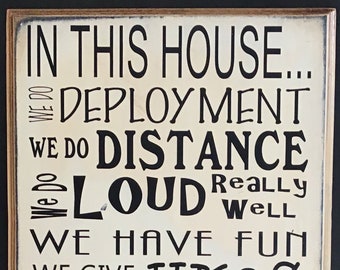 IN THIS HOUSE...
WE DO DEPLOYMENT
WE DO DISTANCE
We Do LOUD Really Well
WE HAVE FUN
WE GIVE